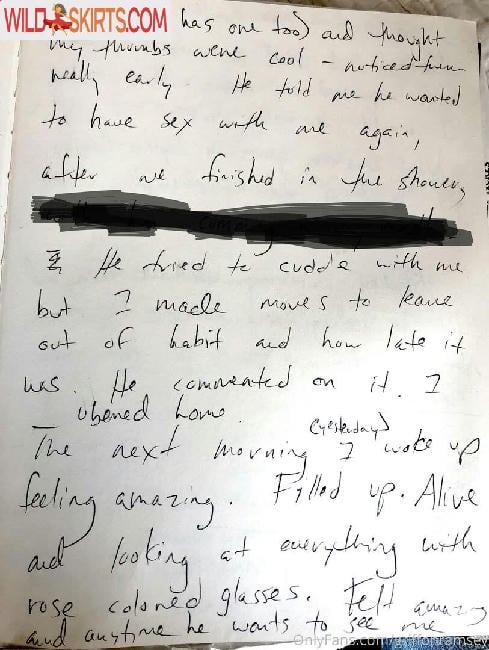 WILD SKIRTS.COM
has one too) and thought
my thumbs were cool - noticed them
really early. He told me he wanted
to have sex with me again,
after we finished in the shower,
He tried to cuddle with me
but I made moves to leave
out of habit and how late it
was. He commented on it. I
ubered home.
(yesterday)
The next morning I woke up
feeling amazing. Filled up. Alive
and looking at everything with
rose colored glasses. Felt amazing
and anytime he wants to see me